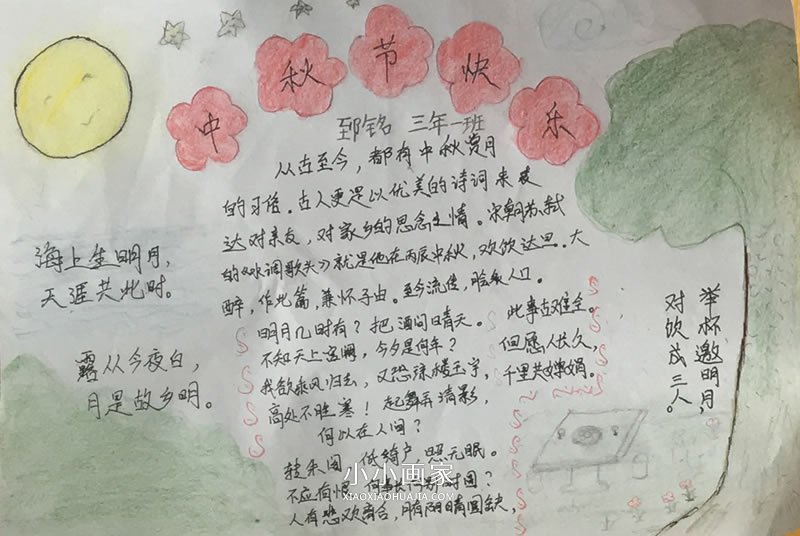 中秋节快乐
郅铭 三年一班
从古至今，都有中秋赏月
的习俗。古人更是以优美的诗词来表
达对亲友，对家乡的思念之情。宋朝苏轼
的《水调歌头》就是他在丙辰中秋，欢饮达旦。大
醉，作此篇，兼怀子由。至今流传，脍炙人口。
明月几时有？把酒问晴天。
不知天上宫阙，今夕是何年？
我欲乘风归去，又恐琼楼玉宇，
高处不胜寒！起舞弄清影，
何以在人间？
转朱阁 低绮户，照无眠。
不应有恨 何事长 别时圆？
人有悲欢离合，月有阴晴圆缺，
此事古难全。
但愿人长久，
千里共婵娟。
海上生明月，
天涯共此时。
露从今夜白，
月是故乡明。
举杯邀明月，
对饮成三人。
小小画家
XIAOXIAOHUAJIA.COM